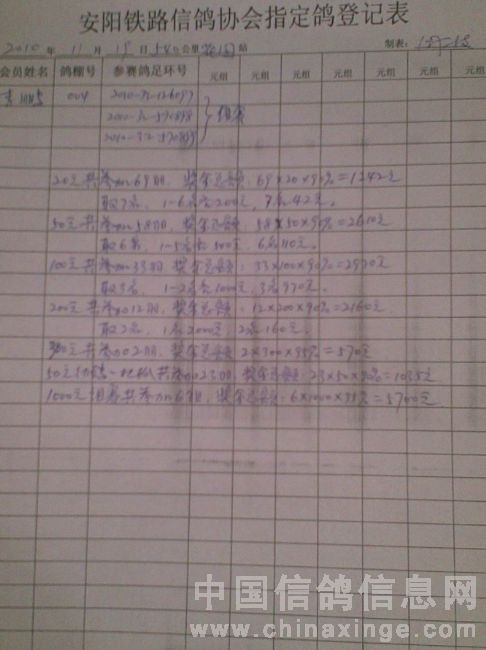 安阳铁路信鸽协会指定鸽登记表
2010 年 11 月 15 日 540 公里 站 制表:
会员姓名 鸽棚号 参赛鸽足环号 元组 元组 元组 元组 元组 元组 元组
004 2010-32-126097
2010-32-570898
2010-32-570899
20元共参加69羽,奖金总额:69×20×90%=1242元
取7名,1-6名各200元,7名42元。
50元共参加58羽,奖金总额:58×50×90%=2610元
取6名,1-5名各500元,6名110元。
100元共参加33羽,奖金总额:33×100×90%=2970元
取3名,1-2名各1000元,3名970元。
200元共参加12羽,奖金总额:12×200×90%=2160元
取2名,1名2000元,2名160元。
300元共参加02羽,奖金总额2×300×95%=570元
50元 共参加023羽,奖金总额:23×50×90%=1035元
1000元组赛共参加6组,奖金总额:6×1000×95%=5700元
中国信鸽信息网
www.chinaxinge.com